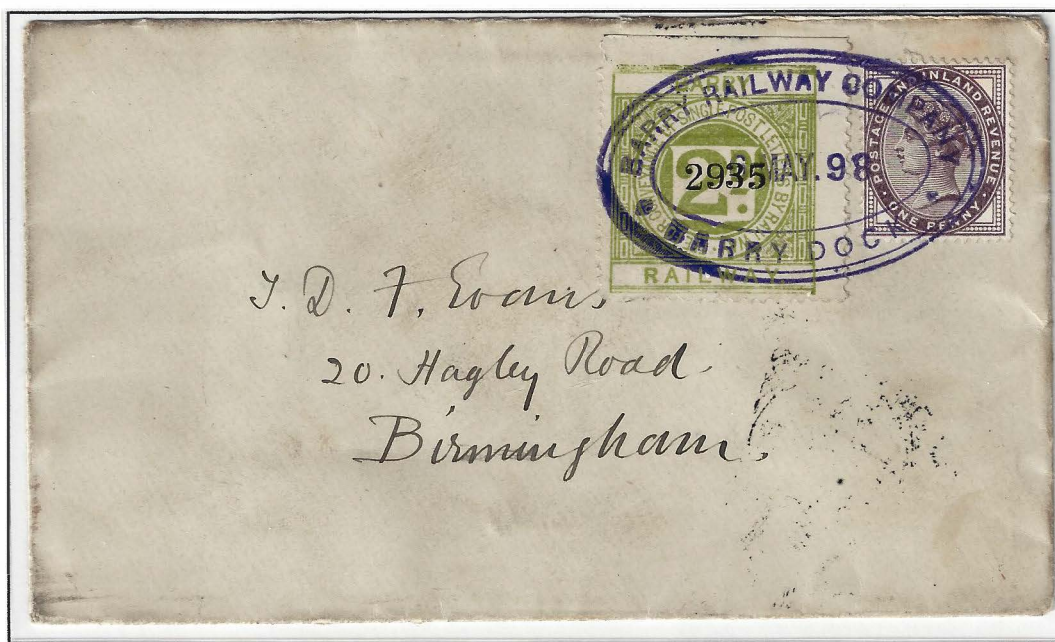 BARRY RAILWAY COMPANY
MAY.98
BARRY DOCK
BARRY
2D.
2935
RAILWAY
POSTAGE AND INLAND REVENUE
ONE PENNY
J. D. F. Evans
20. Hagley Road
Birmingham.